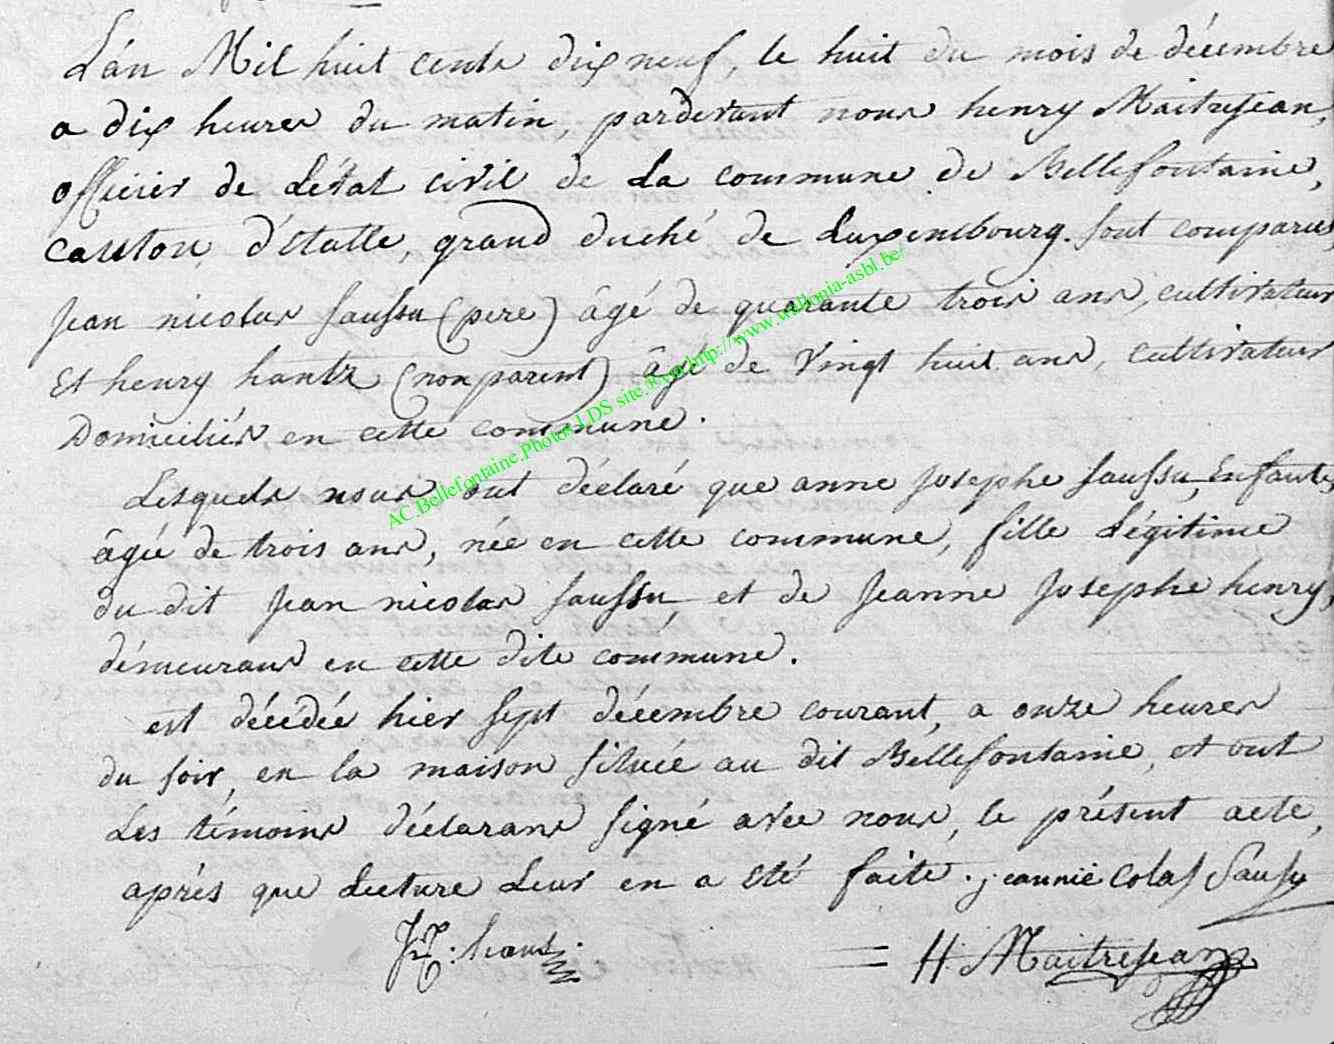 L'án Mil huit cents dix neuf, le huit du mois de décembre
a dix heures du matin, pardevant nous henry Maitrejean,
officier de L'état civil de La commune de Bellefontaine,
canton d'Etalle, grand duché de Luxembourg. sont comparus
Jean nicolas saussu (pere) âgé de quarante trois ans, cultivateur
Et henry hantz (non parent) âgé de Vingt huit ans, cultivateur
Domiciliés en cette commune.
Lesquels nous ont déclaré que anne Josephe saussu, Enfante,
âgée de trois ans, née en cette commune, fille Légitime
du dit Jean nicolas saussu, et de Jeanne Josephe henry,
démeurans en cette dite commune.
est décédée hier sept décembre courant, a onze heures
du soir, en la maison située au dit Bellefontaine, et ont
Les témoins déclarans signé avec nous, le présent acte,
après que Lecture Leur en a été faite. jeannie colas Sausu
H. Maitrejean
AC.Bellefontaine.Photos LDS site http://www.wallonia-asbl.be/